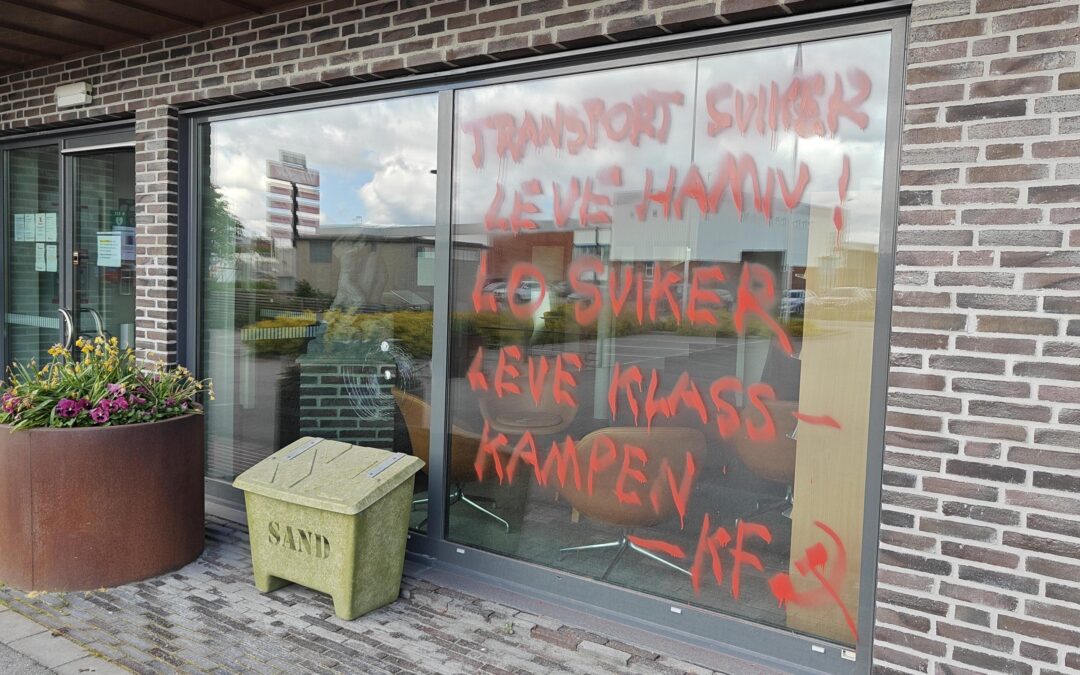 TRANSPORT SVIKER
LEVE HAMN!
LO SVIKER
LEVE KLASS-
KAMPEN
-KF
SAND